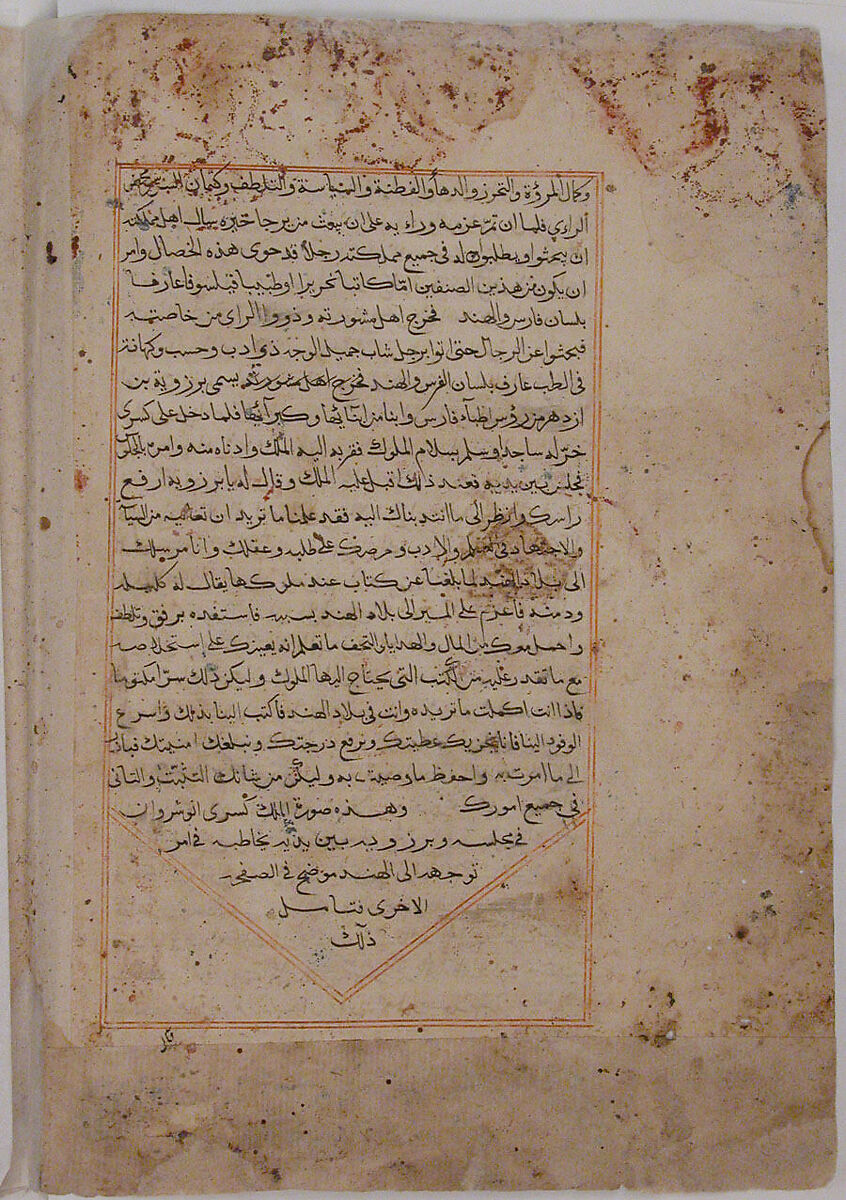 وكمال المروة والتحرز والدهاء والفطنة والسياسة والتلطف وكتمان السر
الراي فلما ان تم عزمه وراء به على ان يبعث من يرجا خيره سال اهل مملكته
ان يبحثوا ويطلبوا له في جميع مملكته رجلا قد حوى هذه الخصال وامر
ان يكون من هذين الصنفين اما كاتبا نحريرا او طبيبا فيلسوفا عارفا
بلسان فارس والهند فخرج اهل مشورته وذووا الراى من خاصته
فبحثوا عن الرجال حتى اتوا برجل شاب جميل الوجه ذي ادب وحسب وكهانة
في الطب عارف بلسان الفرس والهند فخرج اهل مشورته يسمى برزوية بن
ازدهر من رؤس اطباء فارس وابنا من ابنايها وكبرآئها فلما دخل على كسرى
خر له ساجدا وسلم بسلام الملوك فقربه اليه الملك وادناه منه وامره بالجلوس
فجلس بين يديه فعند ذلك اقبل عليه الملك وقال له يا برزويه ارفع
راسك وانظر الى ما انتدبناك اليه فقد علمنا ما تريد ان تعانيه من
والاجتهاد في العلم والادب وحرصك على طلبه وعقلك وانا مرسلك
الى بلاد الهند لما بلغنا عن كتاب عند ملوكها يقال له كليله
ودمنة فاعزم على المسير الى بلاد الهند بسببه فاستفده برفق وتلطف
واحمل معك من المال والهدايا والتحف ما تعلم انه يعينك على استخلاصه
مع ما تقدر عليه من الكتب التي يحتاج اليها الملوك وليكن ذلك سرا مكتوما
فاذا انت اكملت ما تريده وانت في بلاد الهند فاكتب الينا بذلك واسرع
الوفود الينا فانا نجزيك عطيتك ونرفع درجتك ونبلغك امنيتك فبادر
الى ما امرت به واحفظ ما وصيت به وليكن من شانك التثبت والتاني
في جميع امورك وهذه صورة الملك كسرى انوشروان
في مجلسه وبرزويه بين يديه يخاطبه في امر
توجهه الى الهند موضح في الصفحه
الاخرى فتامل
ذلك